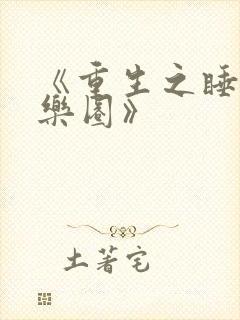 《重生之睡
樂園》
土著宅